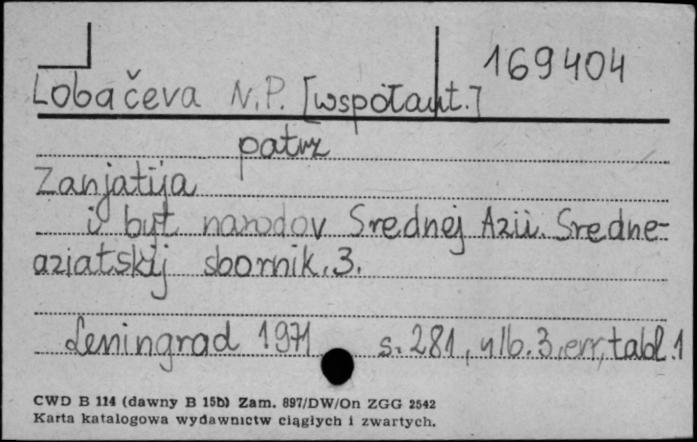 169404
Lobačeva N.P. [współaut.]
patrz
Zanjatija
i byt narodov Srednej Azii. Sredne-
aziatskij sbornik. 3.
Leningrad 1971 s. 281, nlb. 3, err, tabl. 1
CWD B 114 (dawny B 15b) Zam. 897/DW/On ZGG 2542
Karta katalogowa wydawnictw ciągłych i zwartych.